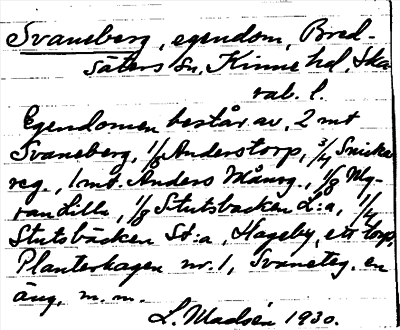 Svaneberg, egendom, Bred-
säters sn, Kinne hd, Ska
rab. l.
Egendomen består av, 2 mt
Svaneberg, 1/8 Anderstorp, 3/4 Snicka
reg., 1 mt. Anders Månsg., 1/8 My-
ran Lilla, 1/8 Stutsbacken L:a, 1/4
Stutsbäcken St:a, Hageby, ett torp,
Planterhagen nr. 1, Svaneteg, en
äng, m. m.
L. Madsén 1930.